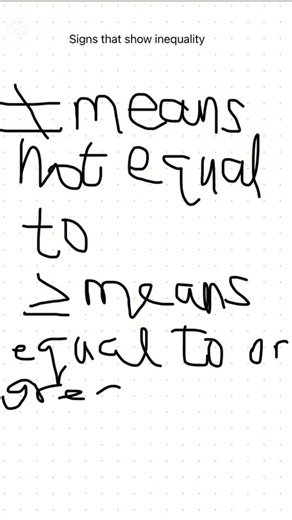 Signs that show inequality
≠ means
not equal
to
≥ means
equal to or